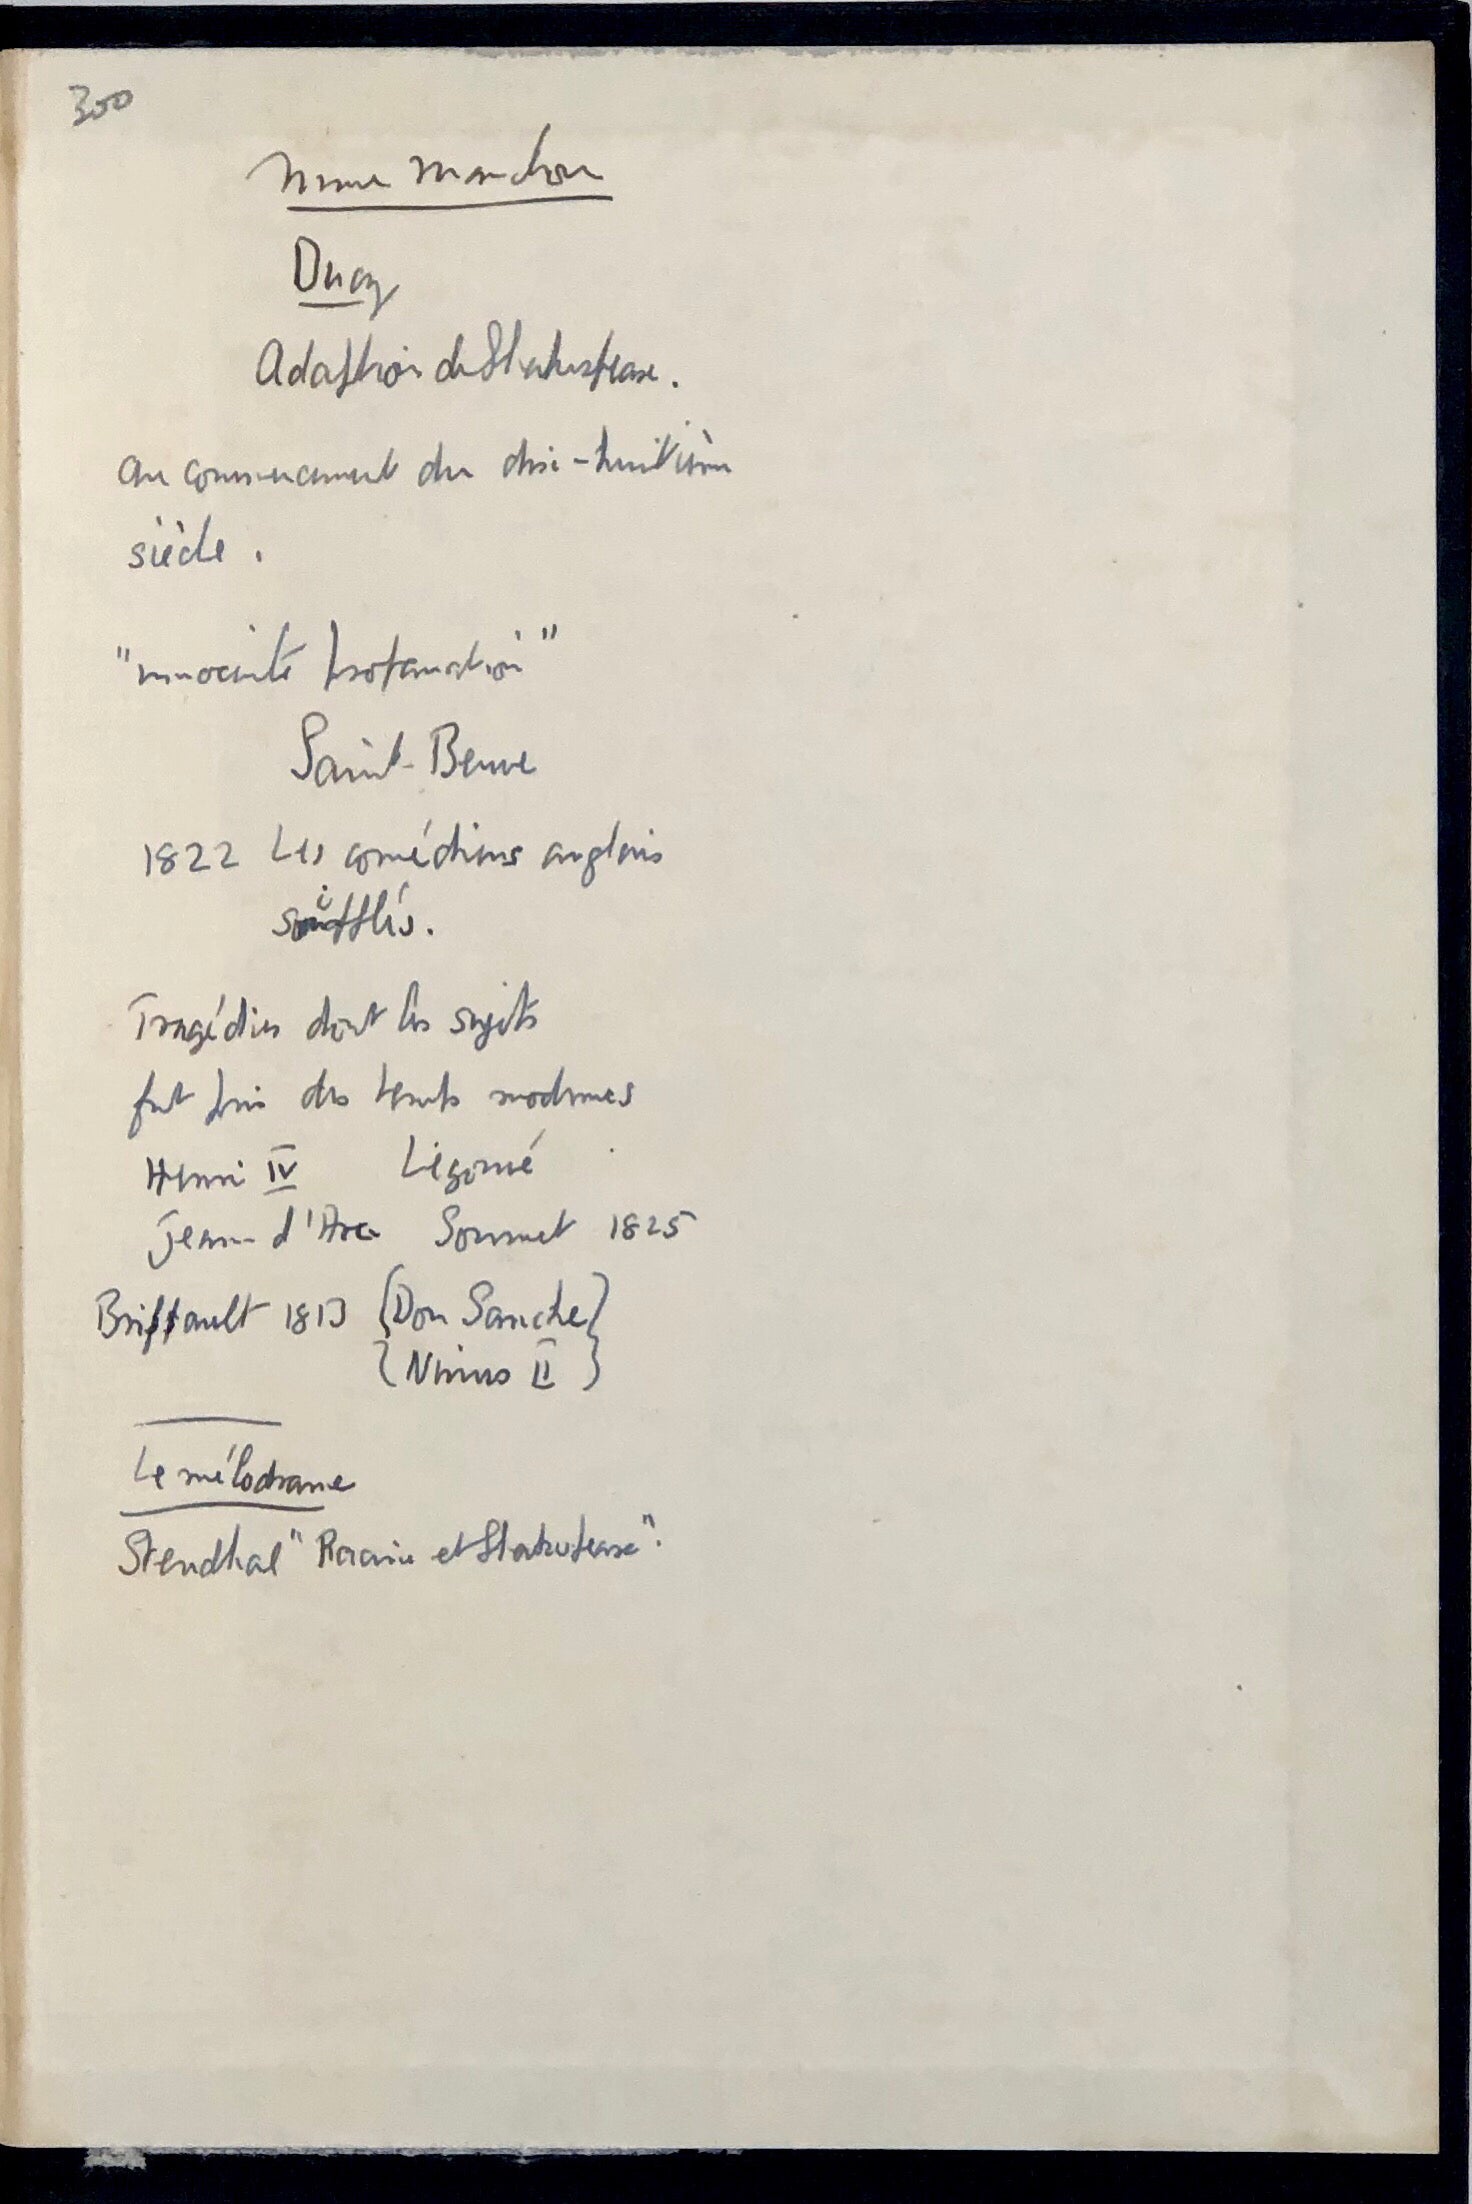 300
Mme
Ducy
Adaption de Shakespeare.
au commencement du dix-huitième
siècle.
"innocente profanation"
Saint-Beuve
1822 Les comédiens anglais
sifflés.
Tragédies dont les sujets
fut pris des temps modernes
Henri IV Légouvé
Jeanne d'Arc Soumet 1825
Briffault 1813 {Don Sanche}
{Ninus II}
Le mélodrame
Stendhal "Racine et Shakespeare".